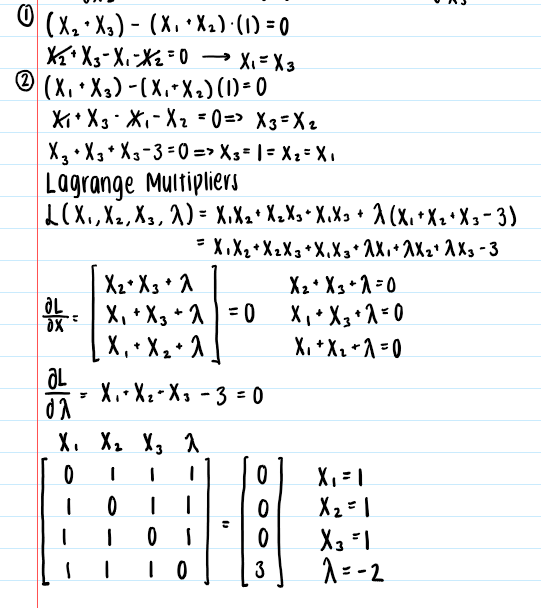 ① (X₂ + X₃) - (X₁ + X₂)·(1) = 0
X₂ + X₃ - X₁ - X₂ = 0 → X₁ = X₃
② (X₁ + X₃) - (X₁ + X₂)(1) = 0
X₁ + X₃ - X₁ - X₂ = 0 => X₃ = X₂
X₃ + X₃ + X₃ - 3 = 0 => X₃ = 1 = X₂ = X₁
Lagrange Multipliers
L(X₁, X₂, X₃, λ) = X₁X₂ + X₂X₃ + X₁X₃ + λ(X₁ + X₂ + X₃ - 3)
= X₁X₂ + X₂X₃ + X₁X₃ + λX₁ + λX₂ + λX₃ - 3
X₂ + X₃ + λ X₂ + X₃ + λ = 0
∂L/∂X = [X₁ + X₃ + λ] = 0 X₁ + X₃ + λ = 0
X₁ + X₂ + λ X₁ + X₂ + λ = 0
∂L/∂λ = X₁ + X₂ - X₃ - 3 = 0
X₁ X₂ X₃ λ
0 1 1 1 0 X₁ = 1
1 0 1 1 0 X₂ = 1
1 1 0 1 = 0 X₃ = 1
1 1 1 0 3 λ = -2